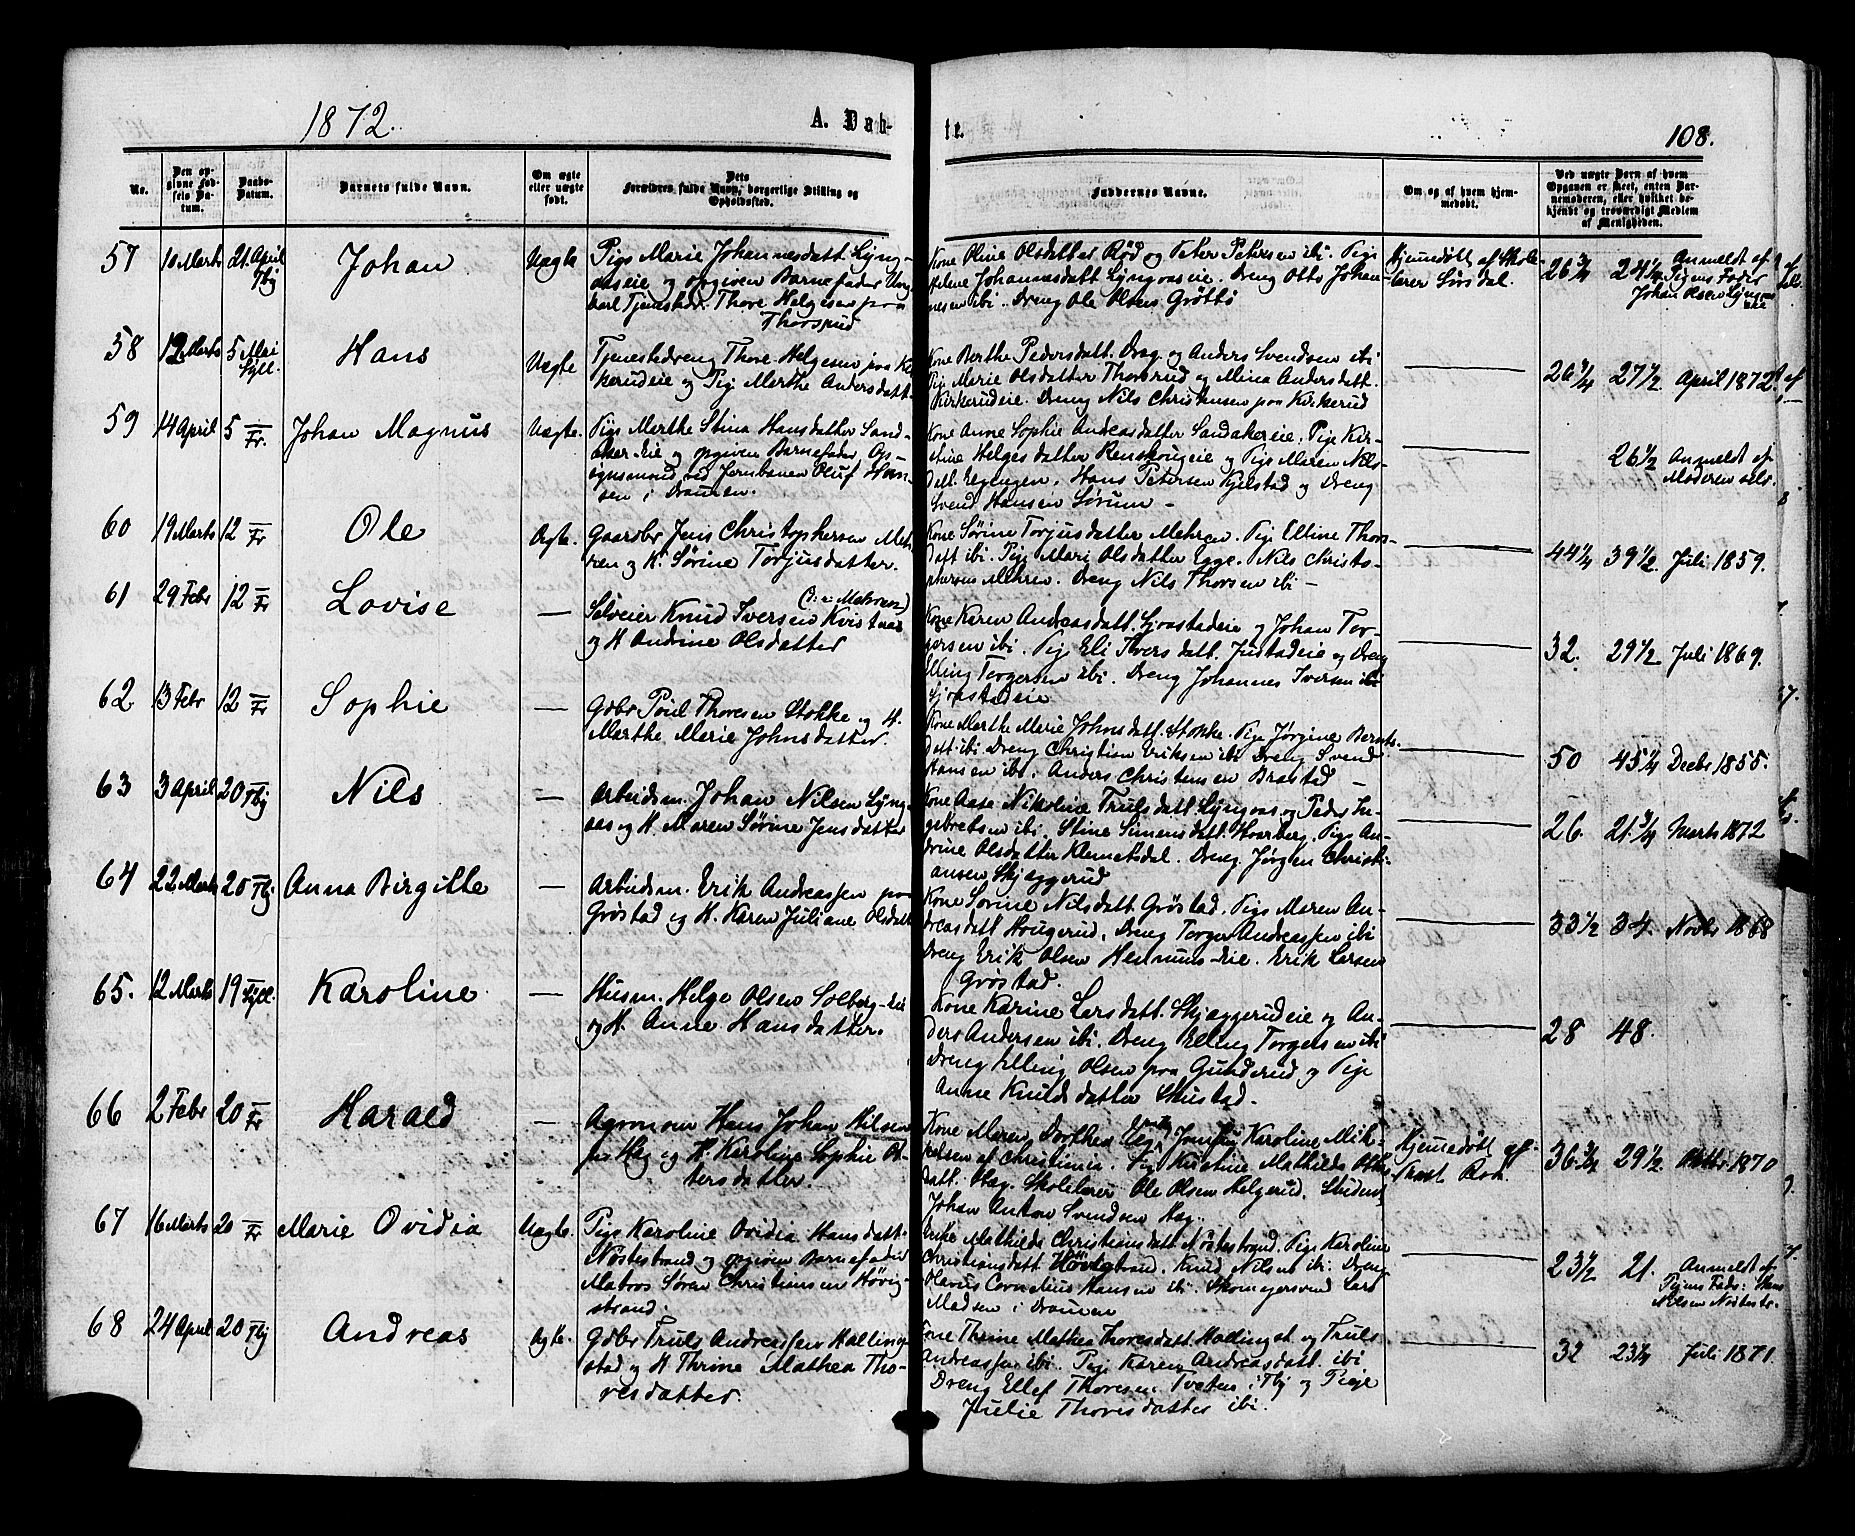 1872.
A. Døb-
te.
108.
No.
Den op-
givne Fød-
sels Da-
tum.
Daabs-
Datum.
Barnets fulde Navn.
Om ægte
eller uægte
født.
Dets
Forældres fulde Navn, borgerlige Stilling og
Opholdssted.
Faddernes Navne.
Om og af hvem hjem-
medøbt.
Ved uægte Børn af hvem
Opgaven er skeet, enten Bar-
nemoderen, eller hvilket be-
kjendt og troværdigt Medlem
af Menigheden.
57 10 Marts 21 April Thj Johan Uægte
Pige Marie Johannesdatt. Lyng-
aaseie og opgiven Barnefader Ung-
karl Tjenestedr. Thore Helgesen paa
Thorsrud
Kone Oline Olsdatter Rød og Peter Petersen ibi. Pige
Helene Johannesdatt Lyngaaseie. Dreng Otto Johan-
nesen ibi. Dreng Ole Olsen Grøtte
Hjemedøbt af Skole-
lærer Sørsdal.
26 3/4 24 1/2 Anmeldt af
Pigens Fader
Johan Olsen Lyngaas-
eie
58 12 Marts 5 Mai Syll. Hans Uægte
Tjenestedreng Thore Helgesen paa Kir-
kerudeie og Pig Marthe Andersdatt.
Kone Berthe Pedersdatt. Drag. og Anders Svendsen ibi
Pig Marie Olsdatter Thorsrud og Mina Andersdatt.
Kirkerudeie. Dreng Nils Christensen paa Kirkerud
26 1/4 27 1/2 April 1872.
59 14 April 5 — Fr. Johan Magnus Uægte.
Pige Marthe Stina Hansdatter Sand-
aker-Eie og opgiven Barnefader Op-
synsmand ved Jernbanen Oluf Han-
sen i Drammen.
Kone Anne Sophie Andreasdatter Sandakereie. Pige Kir-
stine Helgesdatter Renskougeie og Pige Maren Nils-
datt. Egengen. Hans Petersen Kjelstad og Dreng
Svend Hansen Sørum —
26 1/2 Anmeldt af
Moderen selv.
60 19 Marts 12 — Fr Ole Ægte.
Gaardbr Jens Christophersen Meh-
ren og K. Sørine Torjusdatter.
Kone Sørine Torjusdatter Mehren. Pige Elline Thors-
datt ibi. Pige Mari Olsdatter Egge. Nils Christo-
phersen Mehren. Dreng Nils Thorsen ibi —
44 1/4 39 1/2 Juli 1859.
61 29 Febr 12 — Fr Lovise —
Selveier Knud Iversen Kvistaas (d: e Mehren)
og H Andine Olsdatter
Kone Karen Andreasdatt. Sjaastadeie og Johan Tor-
gersen ibi. Pige Eli Iversdatt. Justadeie og Dreng
Elling Torgersen ibi. Dreng Johannes Iversen ibi
Sjaastadeie
32. 29 1/2 Juli 1869.
62. 13 Febr 12 — Fr Sophie —
Gdbr Poul Thoresen Stokke og H.
Marthe Marie Johnsdatter.
Kone Marthe Marie Johnsdatt. Stokke. Pige Jørgine Bernts-
datt ibi. Dreng Christian Eriksen ibi Dreng Svend
Hansen ibi. Anders Christensen Brastad —
50 45 1/4 Decbr 1855.
63 3 April 20 — Thj Nils —
Arbeidsm. Johan Nilsen Lyng-
aas og H. Maren Sørine Jensdatter
Kone Aase Nikoline Trulsdatt. Lyngaas og Peder In-
gebretsen ibi. Stine Simensdatt. Hvarberg. Pige An-
drine Olsdatter Klemetsdal. Dreng. Jørgen Christi-
ansen Skjæggerud
26. 21. 3/4 Marts 1872
64 22 Marts 20 — Thj. Anna Birgitte —
Arbeidsm. Erik Andreassen paa
Grøstad og H. Karen Juliane Olsdatt.
Kone Sørine Nilsdatt. Grøstad. Pige Maren An-
dreasdatt Hougerud. Dreng Torger Andreassen ibi
Dreng Erik Olsen Hennums-Eie. Erik Larsen
Grøstad.
33 1/2 34. Novbr 1868
65. 12 Marts 19 — Syll. Karoline —
Husm. Helge Olsen Solberg-Eie
og H. Anne Hansdatter.
Kone Karine Larsdatt. Skjæggerudeie og An-
ders Andersen ibi. Dreng Elling Torgersen ibi
Dreng Elling Olsen paa Gunderud og Pige
Anne Knudsdatter Skustad.
28 48.
66 2 Febr 20 — Fr Harald —
Agronom Hans Johan Nilsen
paa Heg og H. Karoline Sophie Pe-
tersdatter.
Kone Maren Dorthea Heg, Jomfru Karoline Mik-
kelsen af Christiania. Pige Kristine Mathilde Otters-
datt. Heg. Skolelærer Ole Olsen Helgerud. Student
Johan Anton Svendsen Heg.
Hjemedøbt af
36 3/4 29 1/2 Oktbr 1870
67 16 Marts 20 — Fr Marie Ovidia Uægte.
Pige Karoline Ovidia Hansdatt.
Nøstestrand og opgiven Barnefader
Matros Søren Christiansen Høvig-
strand.
Enke Mathilde Christiansdatt Nøstestrand. Pige Karoline
Christiansdatt Høvigstrand. Knud Nilsen ibi. Dreng
Olavus Cornelius Hansen ibi. Skomagersvend Lars
Madsen i Dramen
23 1/2 21. Anmeldt af
Pigens Fader: Hans
Nilsen Nøstestr.
68 24 April 20 — Thj Andreas Ægte.
Gdbr Truls Andreassen Halling-
stad og H Thrine Mathea Tho-
resdatter.
Kone Thrine Mathea Thoresdatt Hallingst. og Truls
Andreassen ibi. Pige Karen Andreasdatt. ibi
Dreng Ellef Thoresen Tveten i Thj og Pige
Julie Thoresdatter ibi.
32 23 1/4 Juli 1871.